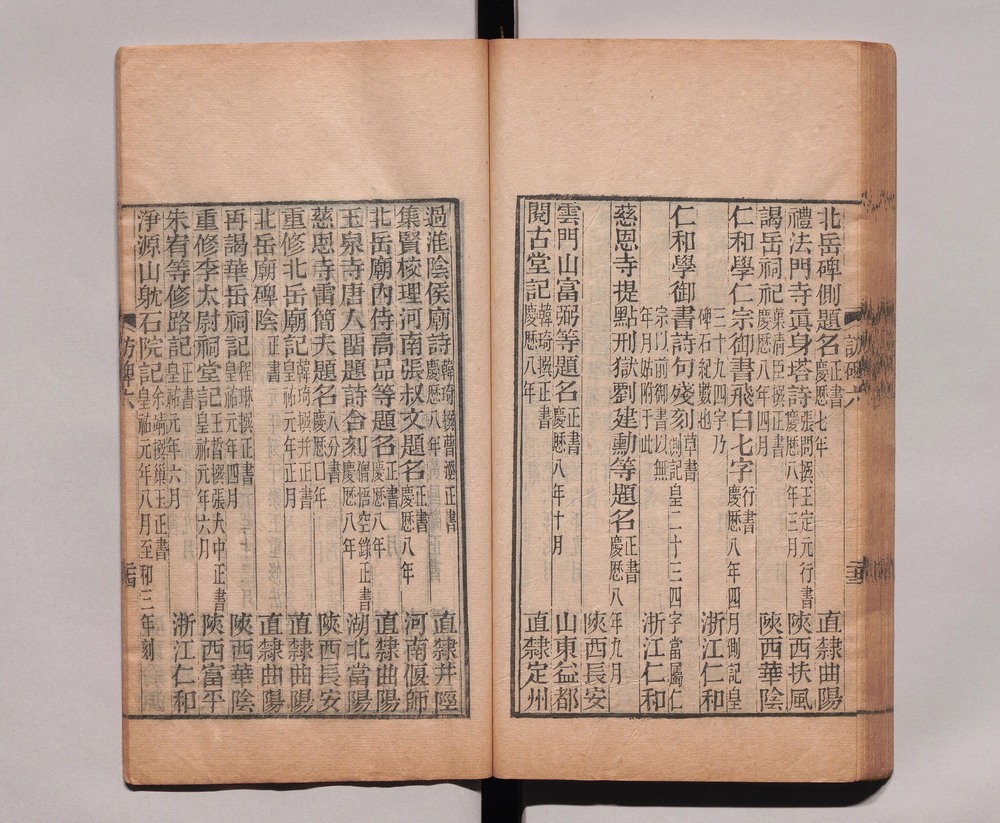 北岳碑側題名正書慶歷七年 直隸曲陽
禮法門寺眞身塔詩張問撰王定元行書慶歷八年三月 陝西扶風
謁岳祠祀葉清臣撰正書慶歷八年四月 陝西華陰
仁和學仁宗御書飛白七字行書慶歷八年四月側記皇
三十九四字乃碑石紀數也 浙江仁和
仁和學御書詩句殘刻草書側記皇二十三四字當屬仁
宗以前御書以無年月姑附于此 浙江仁和
慈恩寺提點刑獄劉建勳等題名正書慶歷八年九月
陝西長安
雲門山富弼等題名正書慶歷八年十月 山東益都
閱古堂記韓琦撰正書慶歷八年 直隸定州
過淮陰侯廟詩韓琦撰曹瀅正書慶歷八年 直隸井陘
集賢校理河南張叔文題名正書慶歷八年 河南偃師
北岳廟內侍高品等題名正書慶歷八年 直隸曲陽
玉泉寺唐人畱題詩合刻僧悟空錄正書慶歷八年 湖北當陽
慈恩寺雷簡夫題名八分書慶歷口年 陝西長安
重修北岳廟記韓琦撰并正書皇祐元年正月 直隸曲陽
北岳廟碑陰正書 直隸曲陽
再謁華岳祠記程琳撰正書皇祐元年四月 陝西華陰
重修李太尉祠堂記王哲撰張大中正書皇祐元年六月 陝西富平
朱宥等修路記正書皇祐元年六月
淨源山躭石院記余靖撰巢玉正書皇祐元年八月至和三年刻 浙江仁和
訪碑六
訪碑六